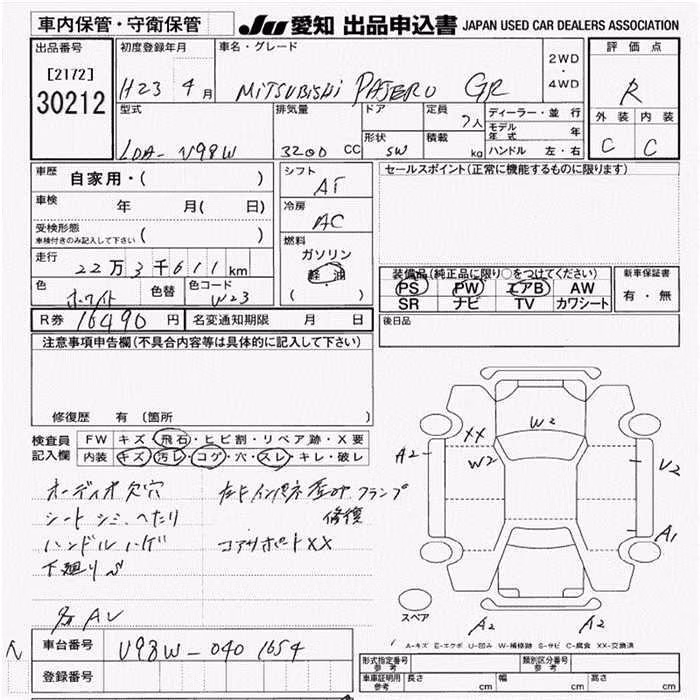 車内保管・守衛保管
JU 愛知 出品申込書 JAPAN USED CAR DEALERS ASSOCIATION
出品番号
[2172]
30212
初度登録年月
H23年4月
車名・グレード
MITSUBISHI PAJERO GR
2WD・4WD
評価点
R
外装 内装
C C
型式
LDA-V98W
排気量
3200 CC
ドア
形状
SW
定員
7人
積載
kg
ディーラー・並行
モデル年式 年
ハンドル 左・右
車歴
自家用・( )
車検
年 月( 日)
受検形態
車検付きのみ記入して下さい ( )
走行
22万3千611km
色
ホワイト
色替
色コード
W23
シフト
AT
冷房
AC
燃料
ガソリン
軽油
( )
セールスポイント(正常に機能するものに限ります)
装備品(純正品に限り○をつけてください)
PS PW エアB AW
SR ナビ TV カワシート
新車保証書
有・無
R券 16490円
名変通知期限 月 日
後日品
注意事項申告欄(不具合内容等は具体的に記入して下さい)
修復歴 有(箇所
検査員記入欄
FW キズ・飛石・ヒビ割・リペア跡・X要
内装 キズ・汚レ・コゲ・穴・スレ・キレ・破レ
オーディオ欠穴
シート シミ、へたり
ハンドルハゲ
下廻りS
コアサポートXX
修復
XX
W2
W2
A2
U2
A1
スペア
A2 A2
A-キズ E-エクボ U-凹み W-補修跡 S-サビ C-腐食 XX-交換済
車台番号
V98W-0401654
登録番号
形式指定番号 参考
類別区分番号 参考
車庫証明用 参考
長さ cm 幅 cm 高さ cm